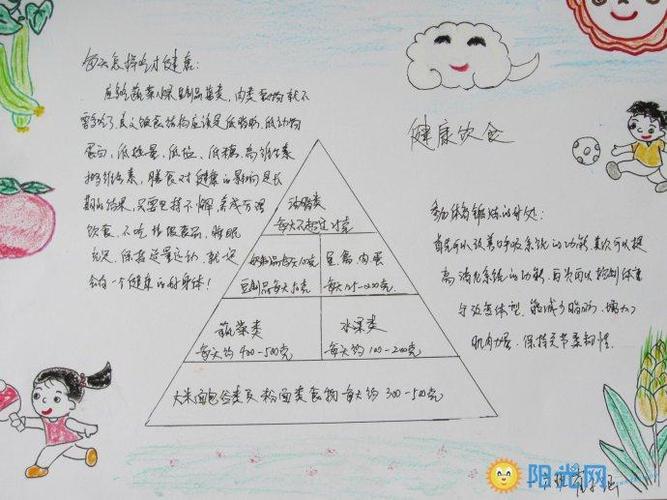 每天怎样吃才健康:
应多吃蔬菜水果豆制品菌类,肉类食物就不
要多吃了,良好饮食结构应该是低脂肪,低动物
蛋白,低热量,低盐,低糖,高维生素
膳食对健康的影响是长
期的结果,只要坚持不懈,养成习惯
饮食,不吃垃圾食品,睡眠
充足,保持适量运动,就一定
会有一个健康的好身体!
健康饮食
油脂类
每天不超过25克
奶制品每天100克
豆制品每天50克
鱼,禽,肉,蛋
每天125-200克
蔬菜类
每天约400-500克
水果类
每天约100-200克
大米面包谷类及粉面类食物每天约300-500克
参加体育锻炼的好处:
首先可以改善呼吸系统的功能,其次可以提
高消化系统的功能,再次可以控制体重
与改善体型,能减少脂肪,增加
肌肉力量,保持关节柔韧性.
阳光网